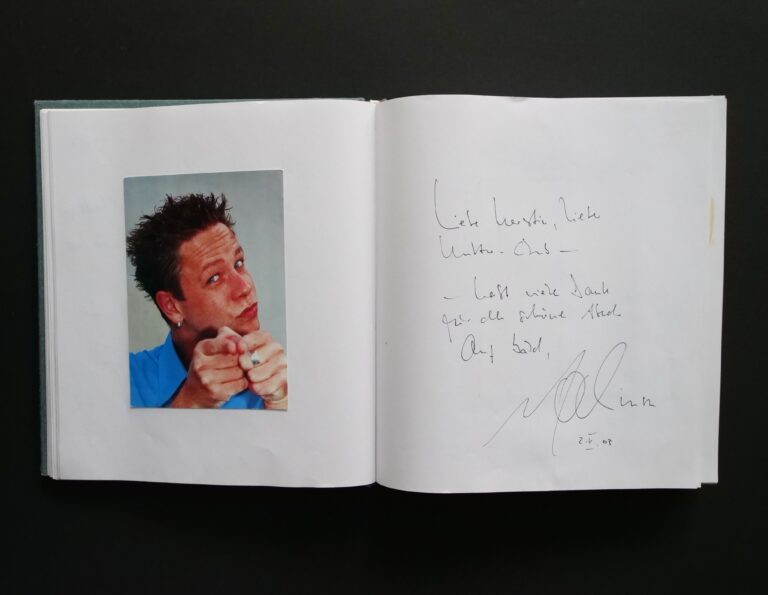 Liebe Kerstin, liebe
Kultur-Club –
– habt vielen Dank
für den schönen Abend
Auf bald,
2.V.03